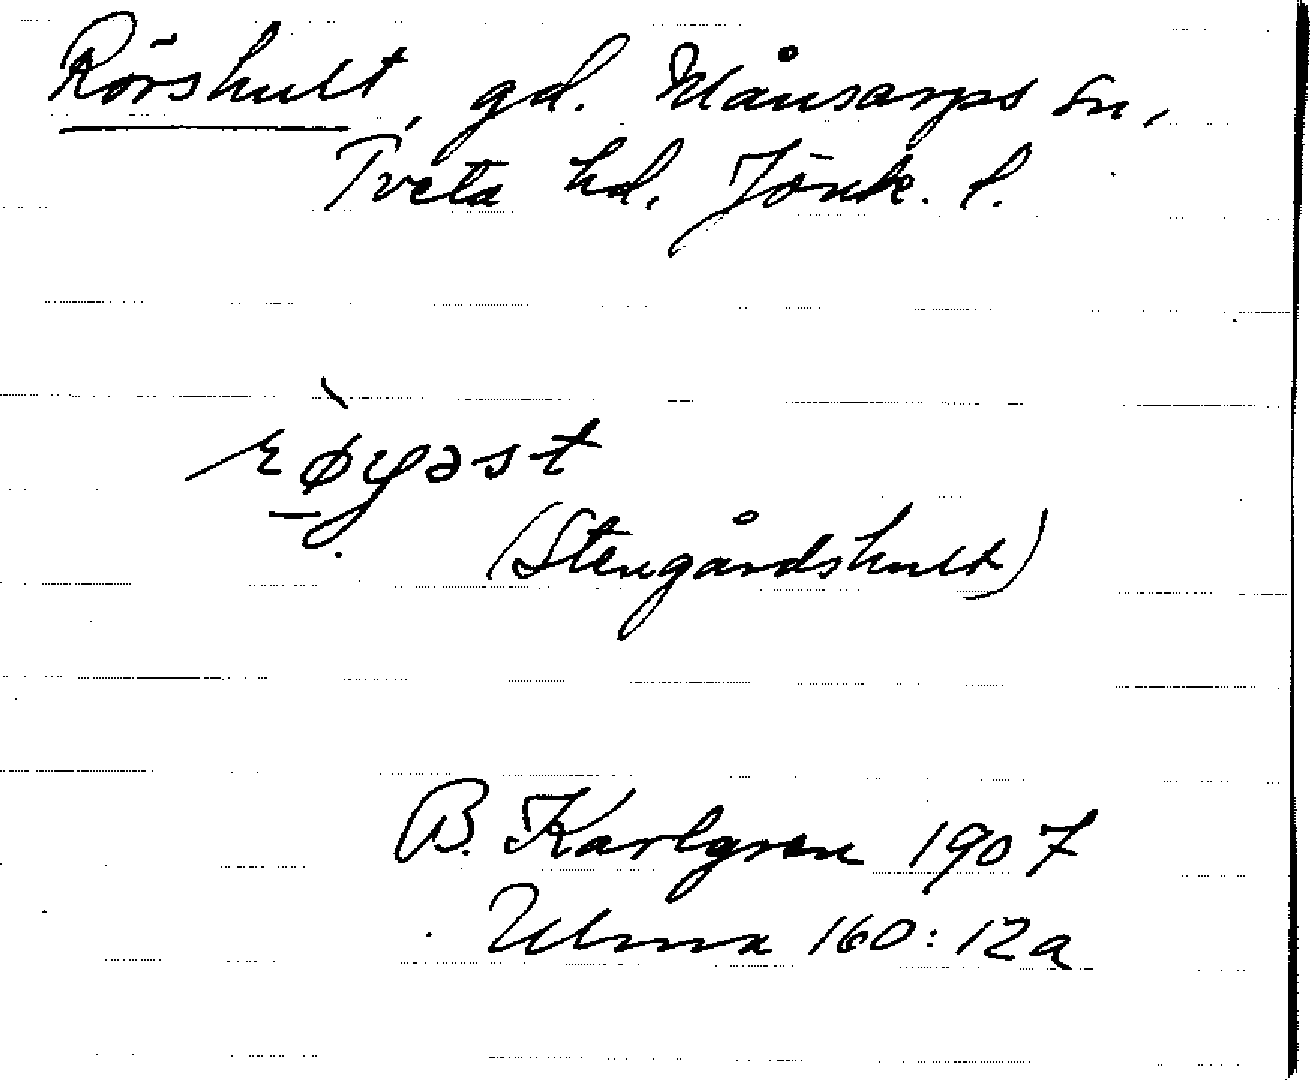 Rörshult, gd. Månsarps sn,
Tveta hd. Jönk. l.
(Stengårdshult)
B. Karlgren 1907
Ulma 160:12a